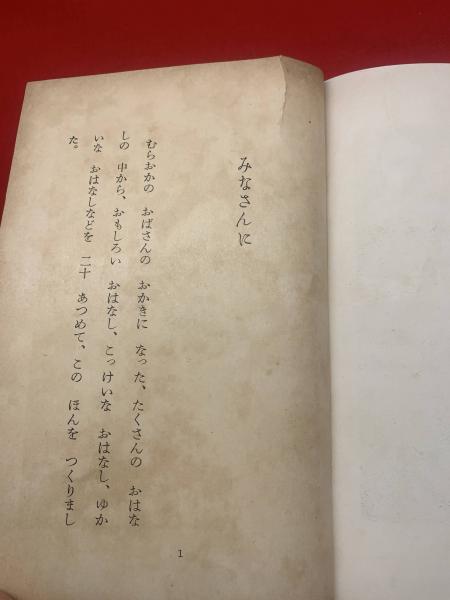 みなさんに
むらおかの おばさんの おかきに なった、たくさんの おはな
しの 中から、おもしろい おはなし、こっけいな おはなし、ゆか
いな おはなしなどを 二十 あつめて、この ほんを つくりまし
た。
1